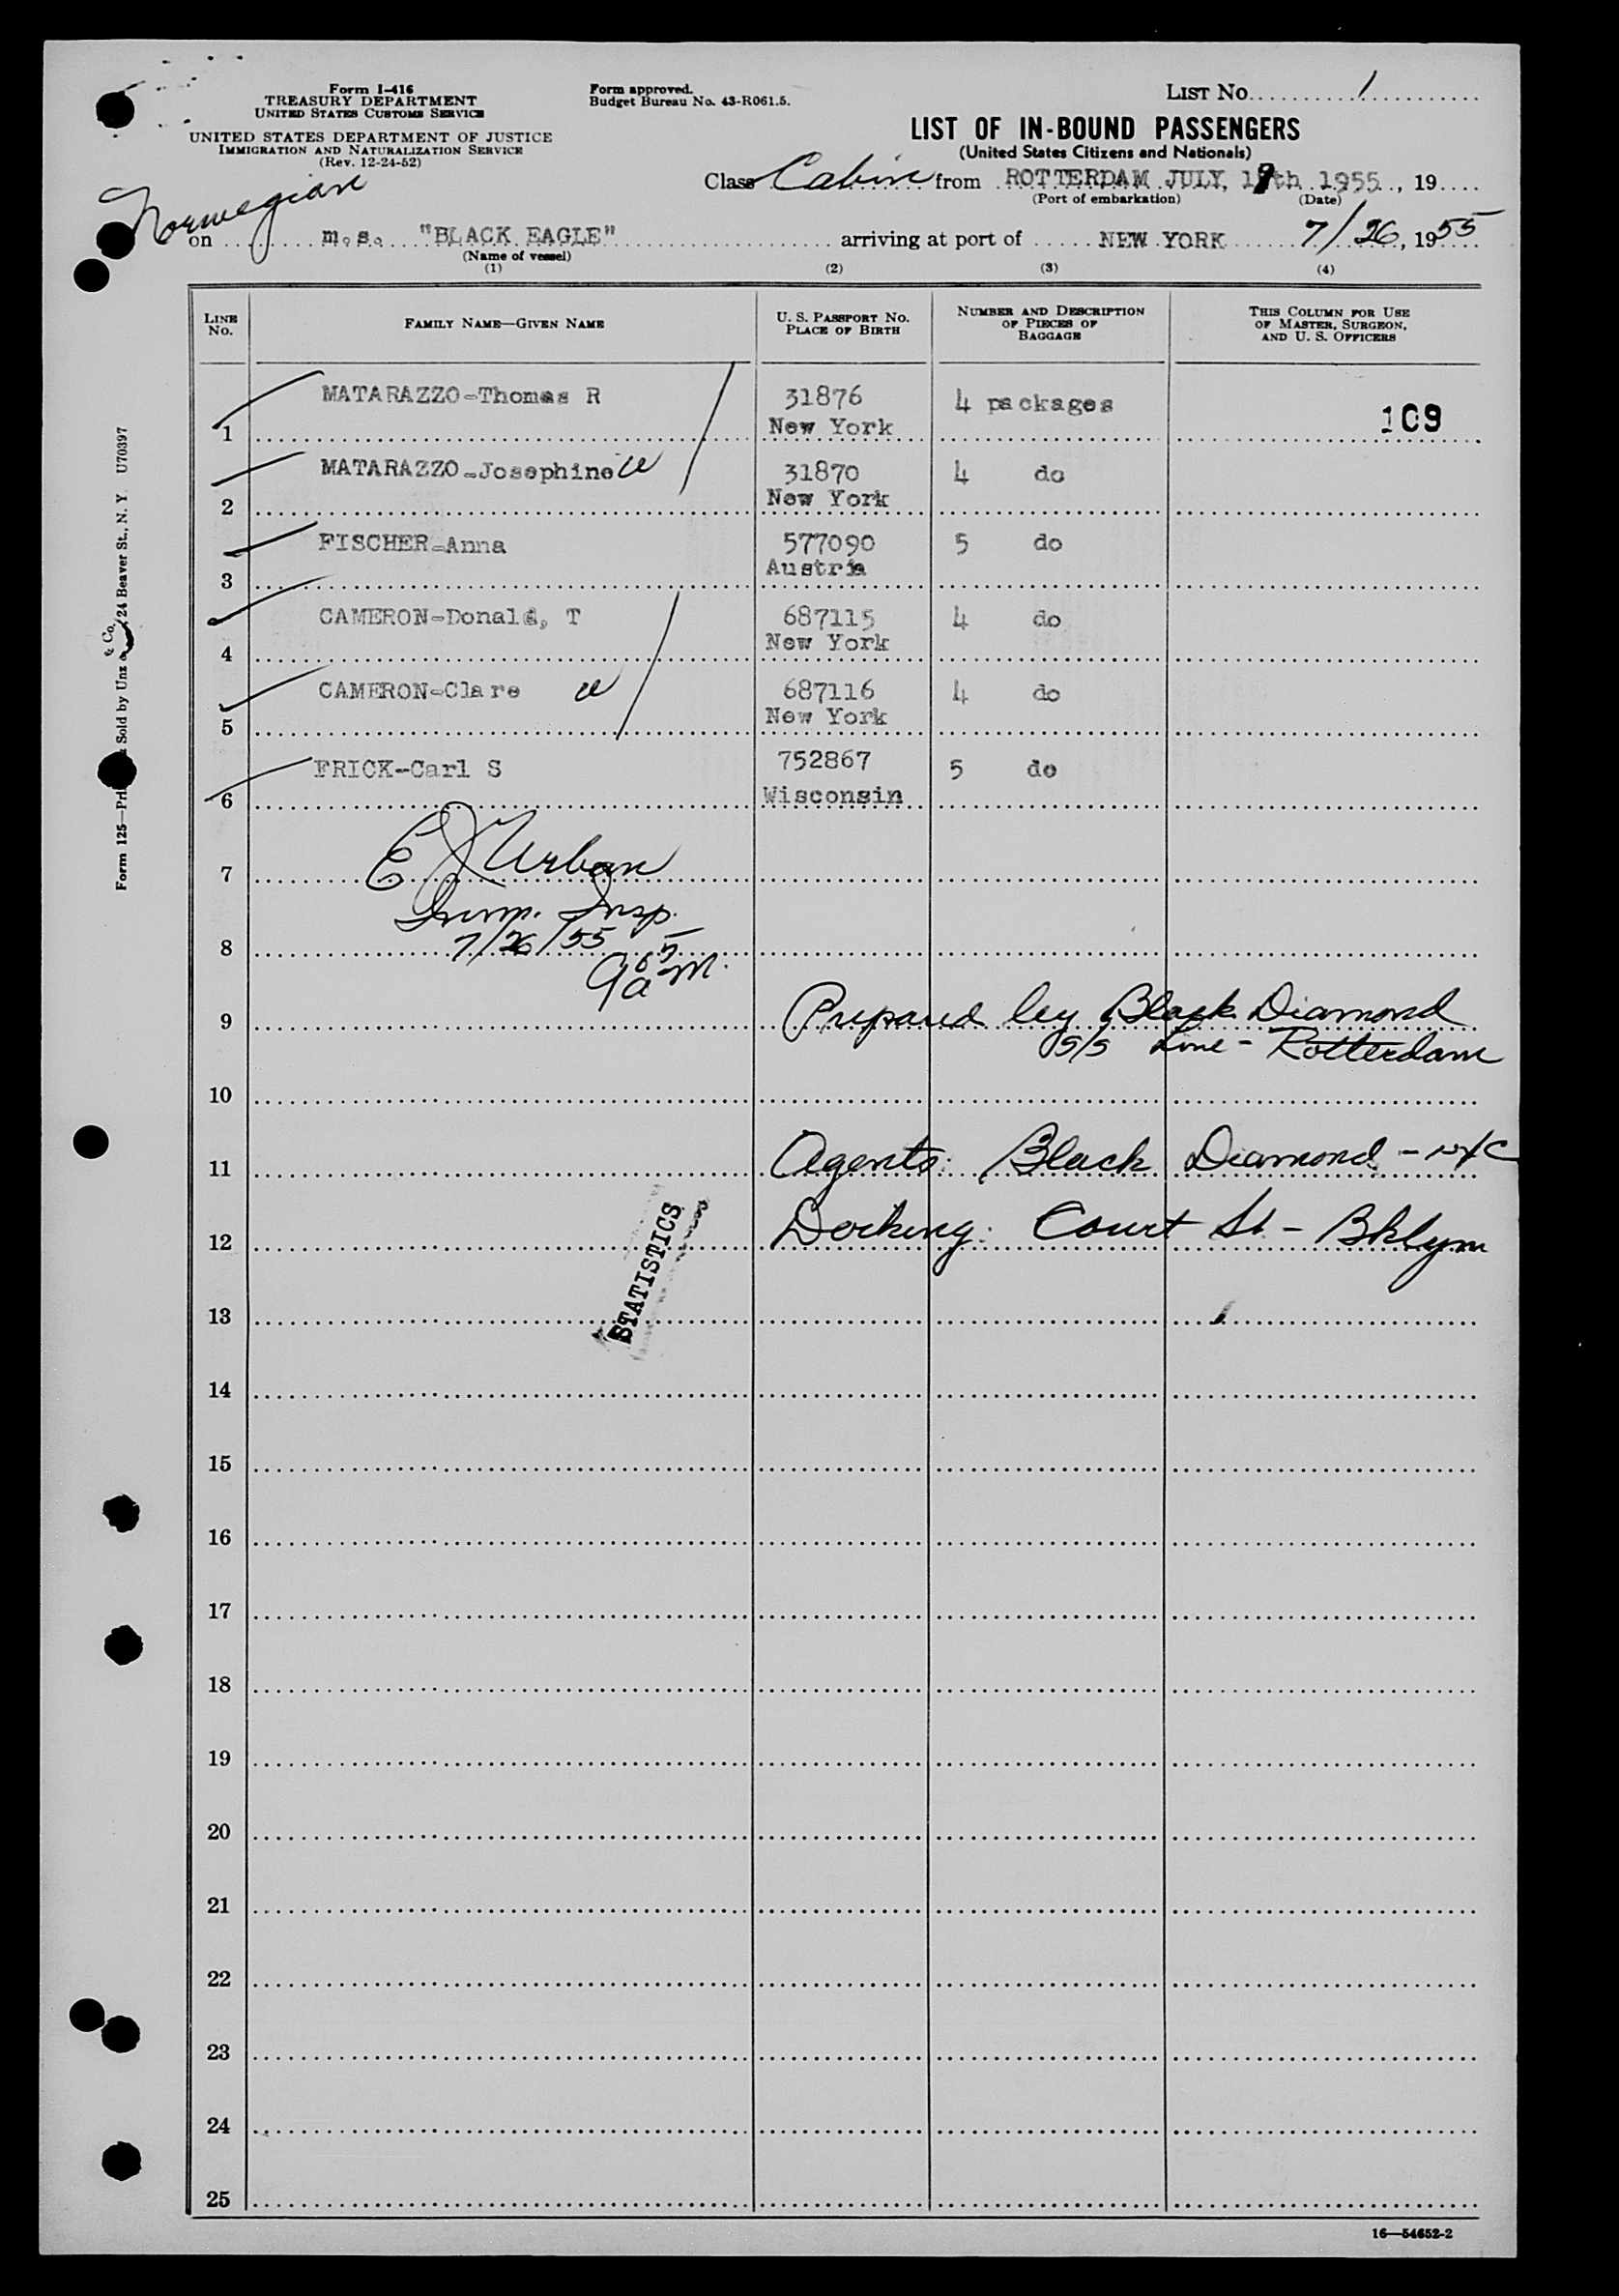 Form I-416
TREASURY DEPARTMENT
UNITED STATES CUSTOMS SERVICE
UNITED STATES DEPARTMENT OF JUSTICE
IMMIGRATION AND NATURALIZATION SERVICE
(Rev. 12-24-52)
Form approved.
Budget Bureau No. 43-R061.5.
LIST NO. 1
LIST OF IN-BOUND PASSENGERS
(United States Citizens and Nationals)
Class Cabin from ROTTERDAM JULY, 19th 1955, 19
(Port of embarkation) (Date)
Norwegian
on m.s. "BLACK EAGLE" arriving at port of NEW YORK 7/26, 1955
(Name of vessel)
(1) (2) (3) (4)
LINE NO. FAMILY NAME—GIVEN NAME U. S. PASSPORT NO. PLACE OF BIRTH NUMBER AND DESCRIPTION OF PIECES OF BAGGAGE THIS COLUMN FOR USE OF MASTER, SURGEON, AND U. S. OFFICERS
1 MATARAZZO-Thomas R 31876 4 packages 109
New York
2 MATARAZZO-Josephine W 31870 4 do
New York
3 FISCHER-Anna 577090 5 do
Austria
4 CAMERON-Donald, T 687115 4 do
New York
5 CAMERON-Clare W 687116 4 do
New York
6 FRICK-Carl S 752867 5 do
Wisconsin
7 E J Urban
Imm. Insp.
8 7/26/55
9 05 am.
9 Prepared by Black Diamond
S/S Line - Rotterdam
10
11 Agents: Black Diamond - NYC
12 Docking: Court St - Bklyn
STATISTICS
13
14
15
16
17
18
19
20
21
22
23
24
25
16—54652-2
Form 125—Pri Sold by Unz & Co. 24 Beaver St., N. Y U70397